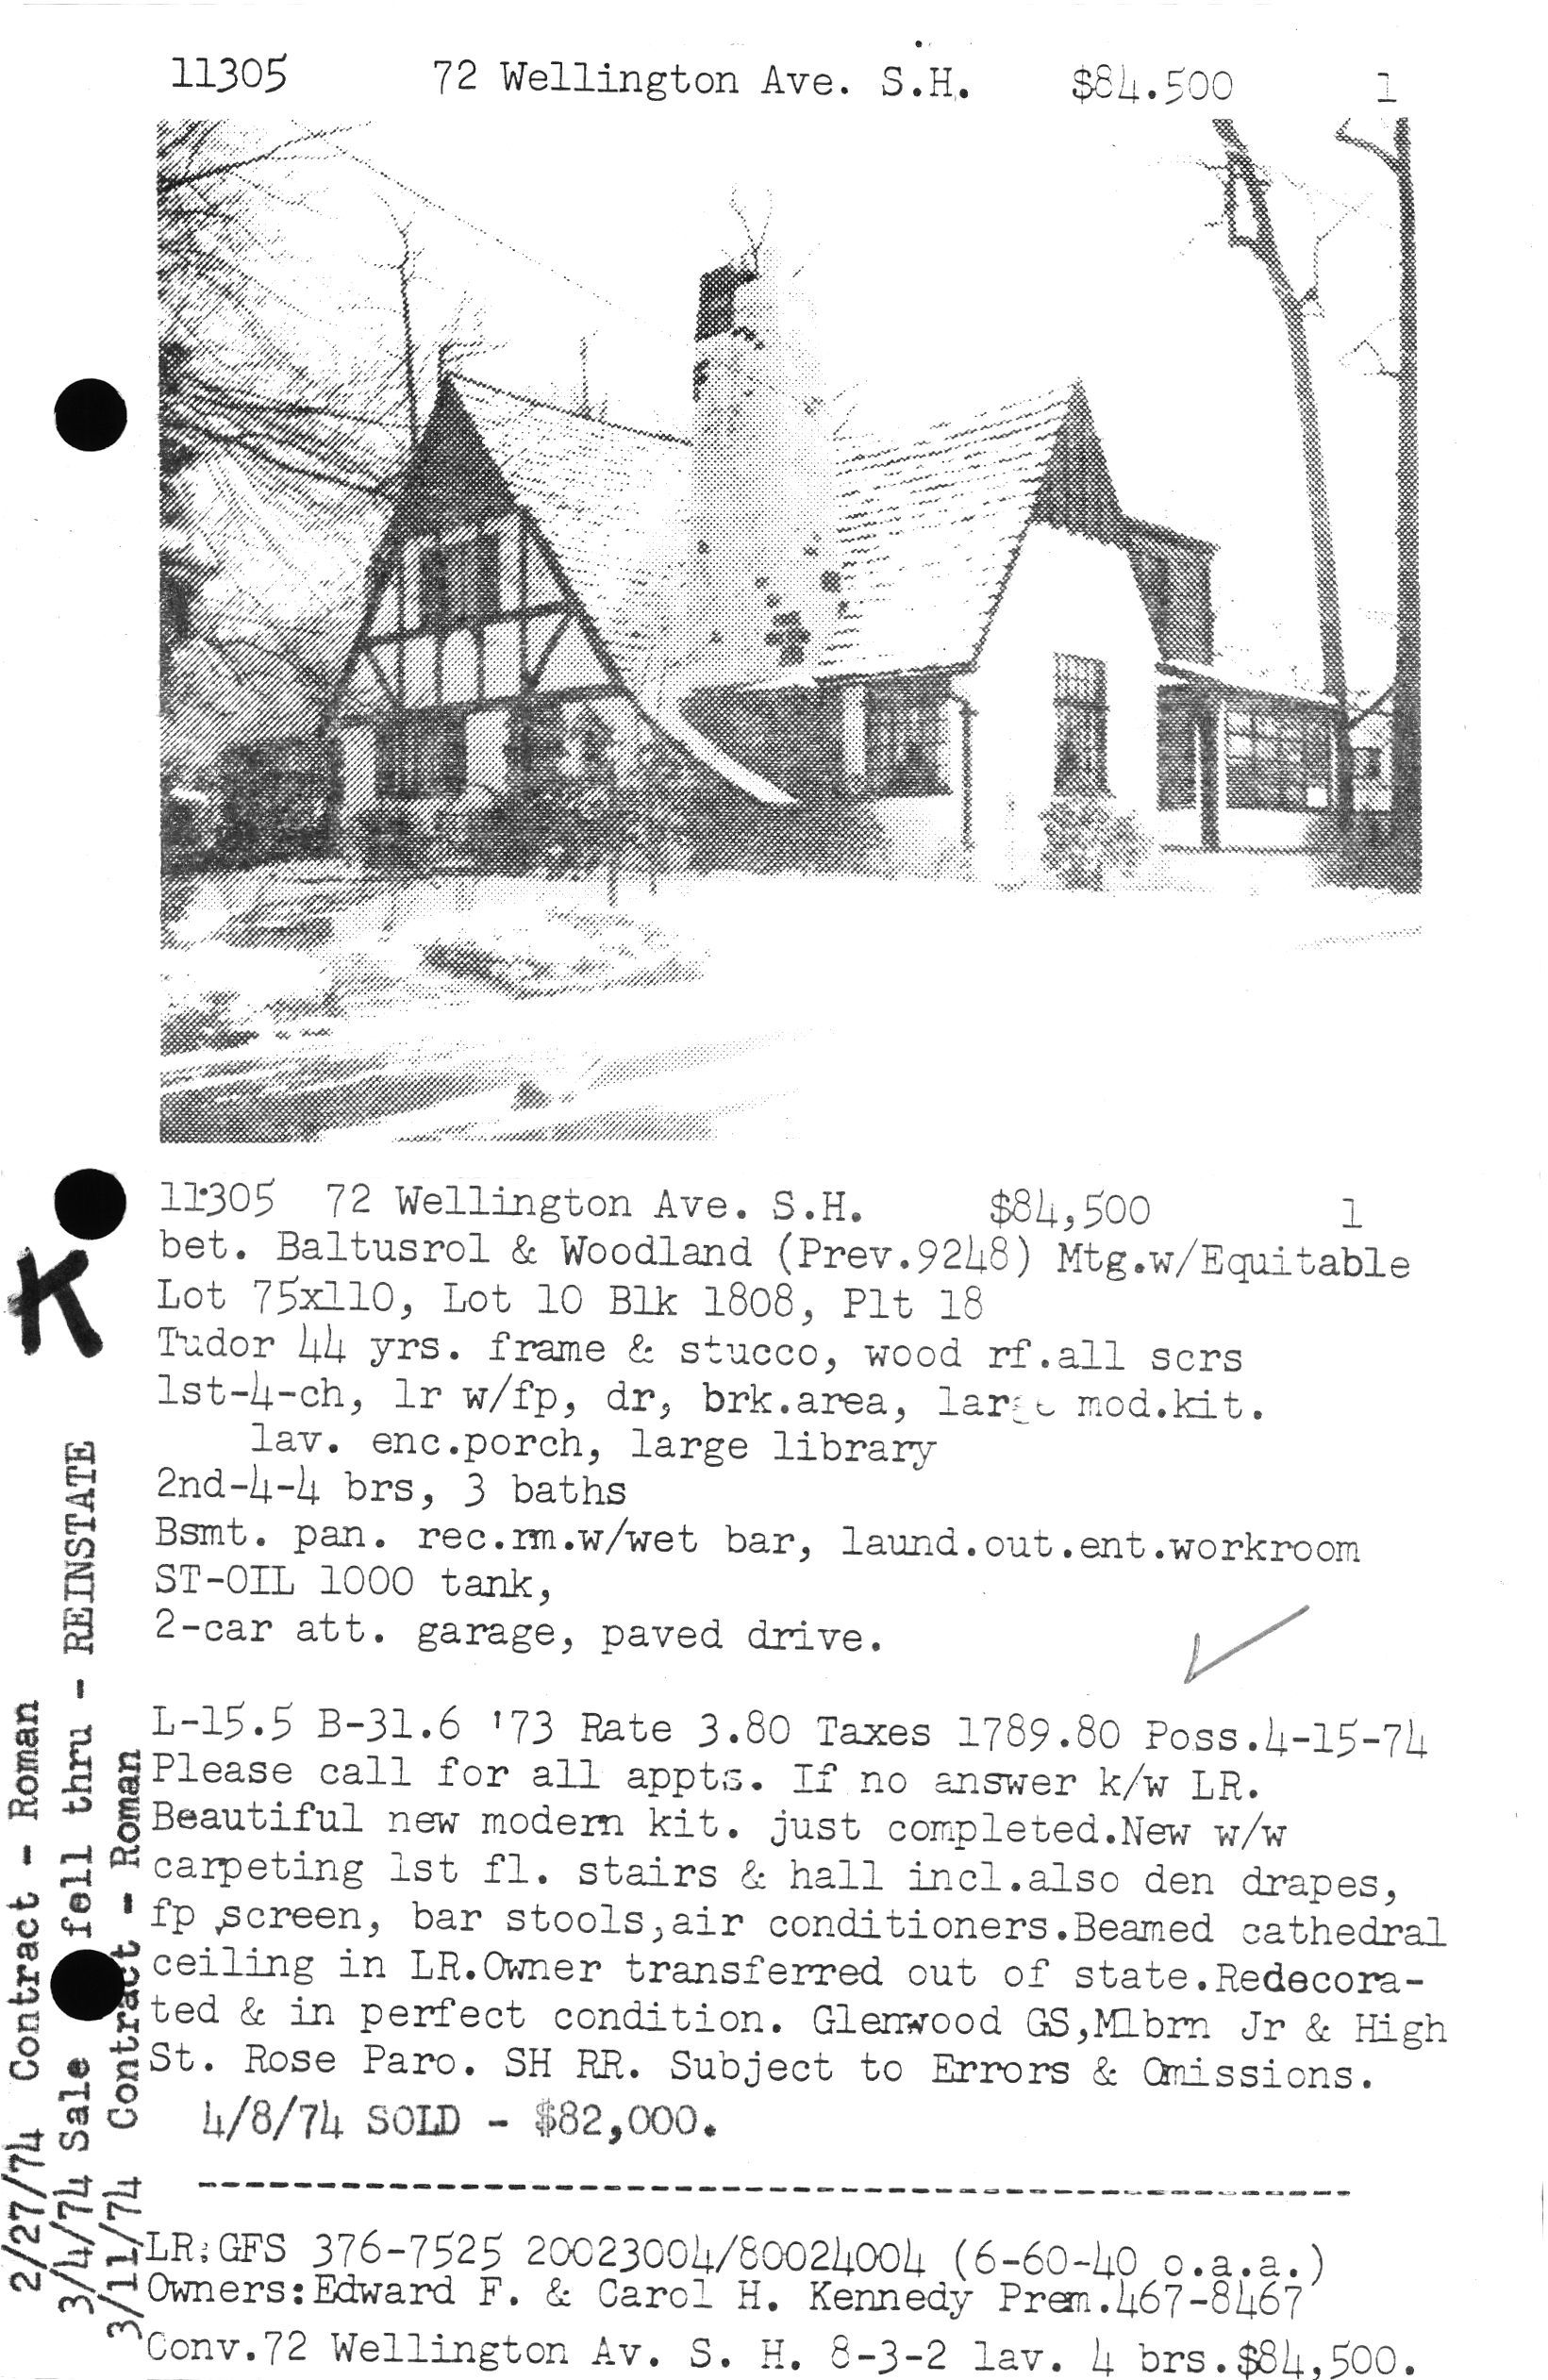 11305 72 Wellington Ave. S.H. $84.500 1
11305 72 Wellington Ave. S.H. $84,500 1
bet. Baltusrol & Woodland (Prev.9248) Mtg.w/Equitable
Lot 75x110, Lot 10 Blk 1808, Plt 18
Tudor 44 yrs. frame & stucco, wood rf.all scrs
1st-4-ch, lr w/fp, dr, brk.area, large mod.kit.
lav. enc.porch, large library
2nd-4-4 brs, 3 baths
Bsmt. pan. rec.rm.w/wet bar, laund.out.ent.workroom
ST-OIL 1000 tank,
2-car att. garage, paved drive.
L-15.5 B-31.6 '73 Rate 3.80 Taxes 1789.80 Poss.4-15-74
Please call for all appts. If no answer k/w LR.
Beautiful new modern kit. just completed.New w/w
carpeting 1st fl. stairs & hall incl.also den drapes,
fp screen, bar stools,air conditioners.Beamed cathedral
ceiling in LR.Owner transferred out of state.Redecora-
ted & in perfect condition. Glenwood GS,Mlbrn Jr & High
St. Rose Paro. SH RR. Subject to Errors & Omissions.
4/8/74 SOLD - $82,000.
LR:GFS 376-7525 20023004/80024004 (6-60-40 o.a.a.)
Owners:Edward F. & Carol H. Kennedy Prem.467-8467
Conv.72 Wellington Av. S. H. 8-3-2 lav. 4 brs.$84,500.
K
2/27/74 Contract - Roman
3/4/74 Sale fell thru - REINSTATE
3/11/74 Contract - Roman